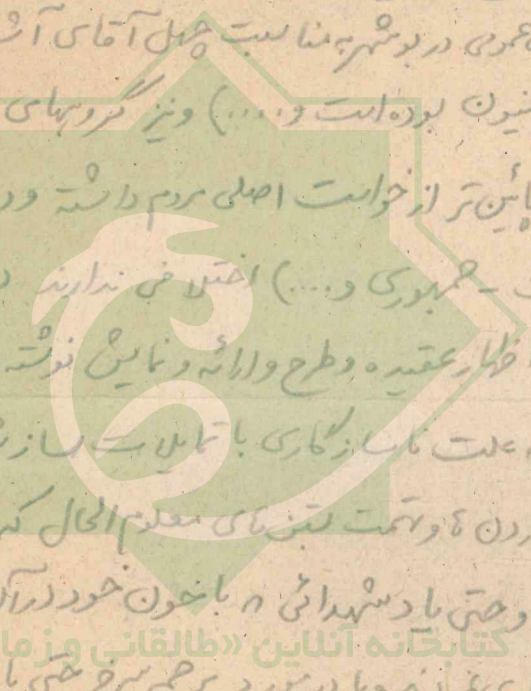 عمومی در بوشهر به مناسبت چهل آقای
بوده است و....) و نیز گروههای
پائین تر از خواست اصلی مردم داشته و
- جمهوری و....) اختلافی ندارند
اظهار عقیده و طرح و ارائه و نمایش نوشته
علت ناسازگاری با تمایلات
و تهمت بستن های معلوم الحال
و حتی یاد شهدائی با خون خود
کتابخانه آنلاین «طالقانی و زما